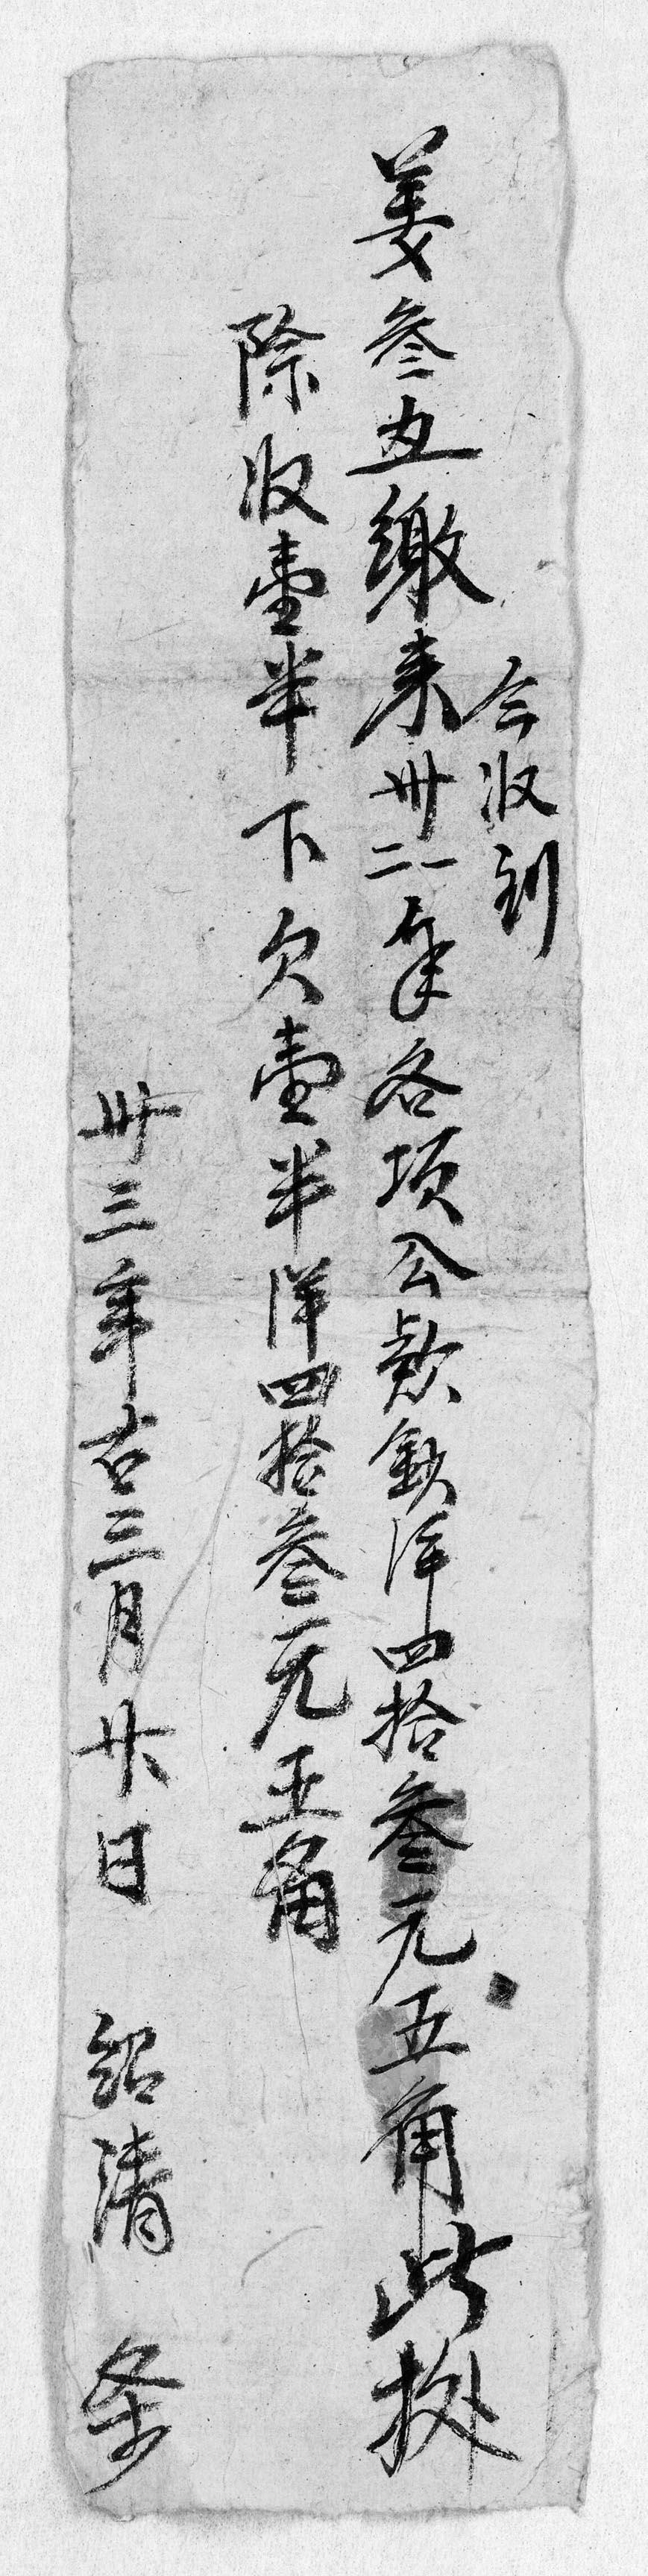 今收到
姜叁五缴来卅一二年各項公款鈔洋四拾叁元五角此拠
除收壹半下欠壹半洋四拾叁元五角
卅三年古三月廿八日 紹清 条